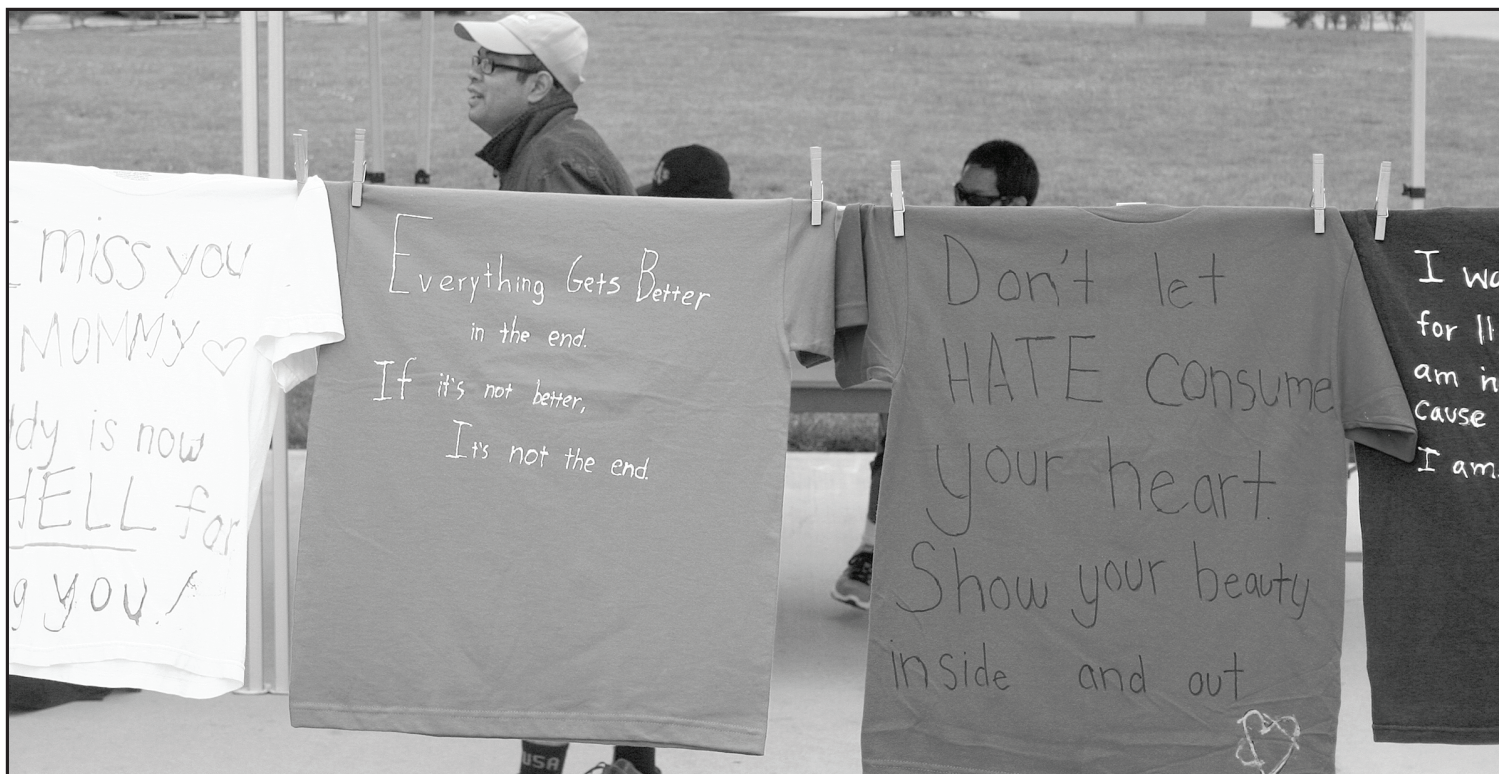 I miss you
MOMMY
dy is now
HELL for
g you!
Everything Gets Better
in the end.
If it's not better,
It's not the end.
Don't let
HATE consume
your heart.
Show your beauty
inside and out
I wa
for 11
am in
cause
I am
USA